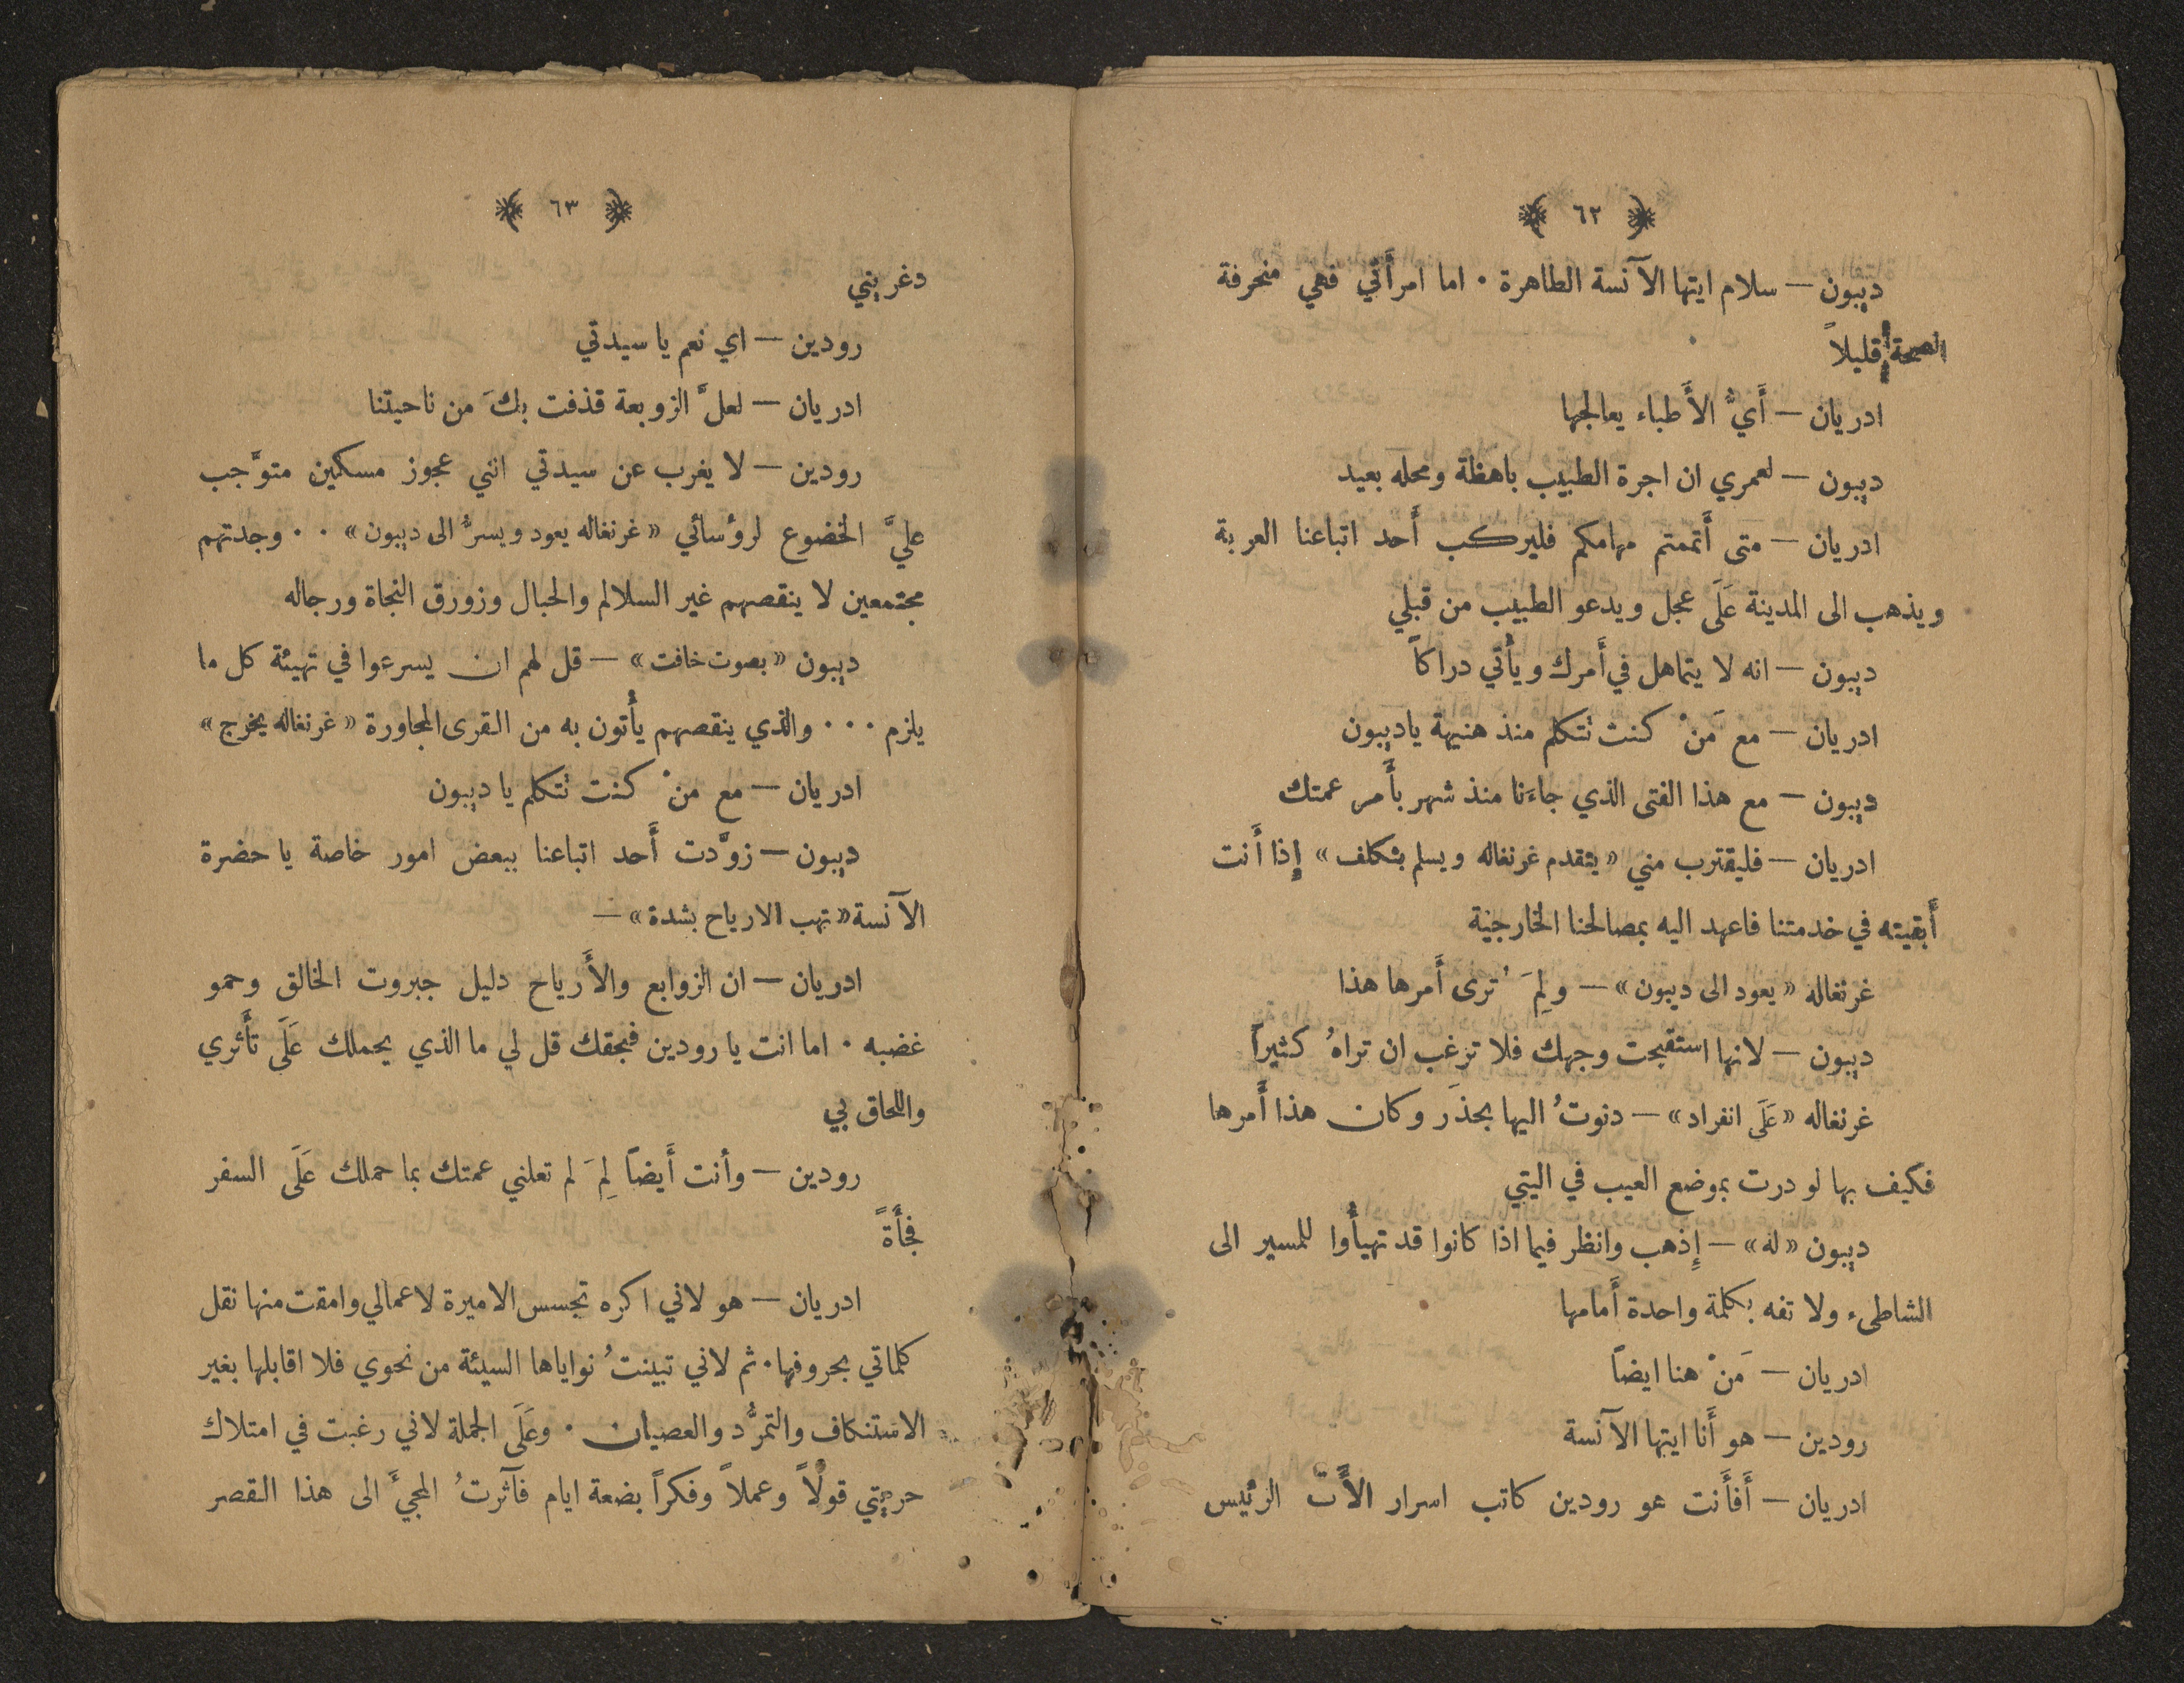 ﴿ ٦٢ ﴾
ديبون — سلام ايتها الآنسة الطاهرة ٠ اما امرأَتي فهي منحرفة
الصحة قليلاً
ادريان — أَيُّ الأَطباء يعالجها
ديبون — لعمري ان اجرة الطبيب باهظة ومحله بعيد
ادريان — متى أَتممتم مهامكم فليركب أَحد اتباعنا العربة
ويذهب الى المدينة عَلَى عجل ويدعو الطبيب من قبلي
ديبون — انه لا يتماهل في أَمرك ويأْتي دراكاً
ادريان — مع مَنْ كنت تتكلم منذ هنيهة ياديبون
ديبون — مع هذا الفتى الذي جاءَنا منذ شهر بأَمر عمتك
ادريان — فليقترب مني «يتقدم غرنغاله ويسلم بتكلف» إِذا أَنت
أَبقيته في خدمتنا فاعهد اليه بمصالحنا الخارجية
غرنغاله «يعود الى ديبون» — ولِمَ تُرى أَمرها هذا
ديبون — لانها استقبحت وجهك فلا ترغب ان تراهُ كثيراً
غرنغاله «عَلَى انفراد» — دنوتُ اليها بحذَر وكان هذا أَمرها
فكيف بها لو درت بموضع العيب في اليتي
ديبون «له» — إِذهب وانظر فيما اذا كانوا قد تهيأُوا للمسير الى
الشاطىء ولا تفه بكلمة واحدة أَمامها
ادريان — مَنْ هنا ايضاً
رودين — هو أَنا ايتها الآنسة
ادريان — أَفأَنت هو رودين كاتب اسرار الأَب الرئيس
﴿ ٦٣ ﴾
دغريني
رودين — اي نعم يا سيدتي
ادريان — لعلَّ الزوبعة قذفت بكَ من ناحيتنا
رودين — لا يغرب عن سيدتي انني عجوز مسكين متوَّجب
عليَّ الخضوع لرؤسائي «غرنغاله يعود ويسرُّ الى ديبون» ٠٠ وجدتهم
مجتمعين لا ينقصهم غير السلالم والحبال وزورق النجاة ورجاله
ديبون «بصوت خافت» — قل لهم ان يسرعوا في تهيئة كل ما
يلزم ٠٠٠ والذي ينقصهم يأْتون به من القرى المجاورة «غرنغاله يخرج»
ادريان — مع منْ كنت تتكلم يا ديبون
ديبون — زوَّدت أَحد اتباعنا ببعض امور خاصة يا حضرة
الآنسة «تهب الارياح بشدة» —
ادريان — ان الزوابع والأَرياح دليل جبروت الخالق وحمو
غضبه ٠ اما انت يا رودين فبحقك قل لي ما الذي يحملك عَلَى تأَثري
واللحاق بي
رودين — وأنت أَيضاً لِمَ لم تعلني عمتك بما حملك عَلَى السفر
فجأَةً
ادريان — هو لاني اكره تجسس الاميرة لاعمالي وامقت منها نقل
كلماتي بحروفها ٠ ثم لاني تبينتُ نواياها السيئة من نحوي فلا اقابلها بغير
الاستنكاف والتمرُّد والعصيان ٠ وعَلَى الجملة لاني رغبت في امتلاك
حريتي قولاً وعملاً وفكراً بضعة ايام فآثرتُ المجيَّ الى هذا القصر